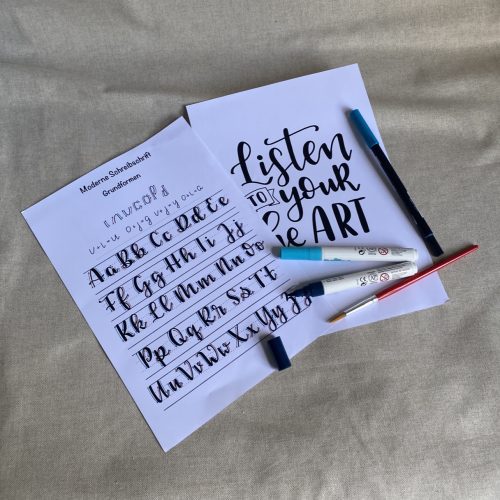 Moderne Schreibschrift
Grundformen
Aa Bb Cc Dd Ee
Ff Gg Hh Ii Jj
Kk Ll Mm Nn Oo
Pp Qq Rr Ss Tt
Uu Vv Ww Xx Yy
Listen
TO
your
ART